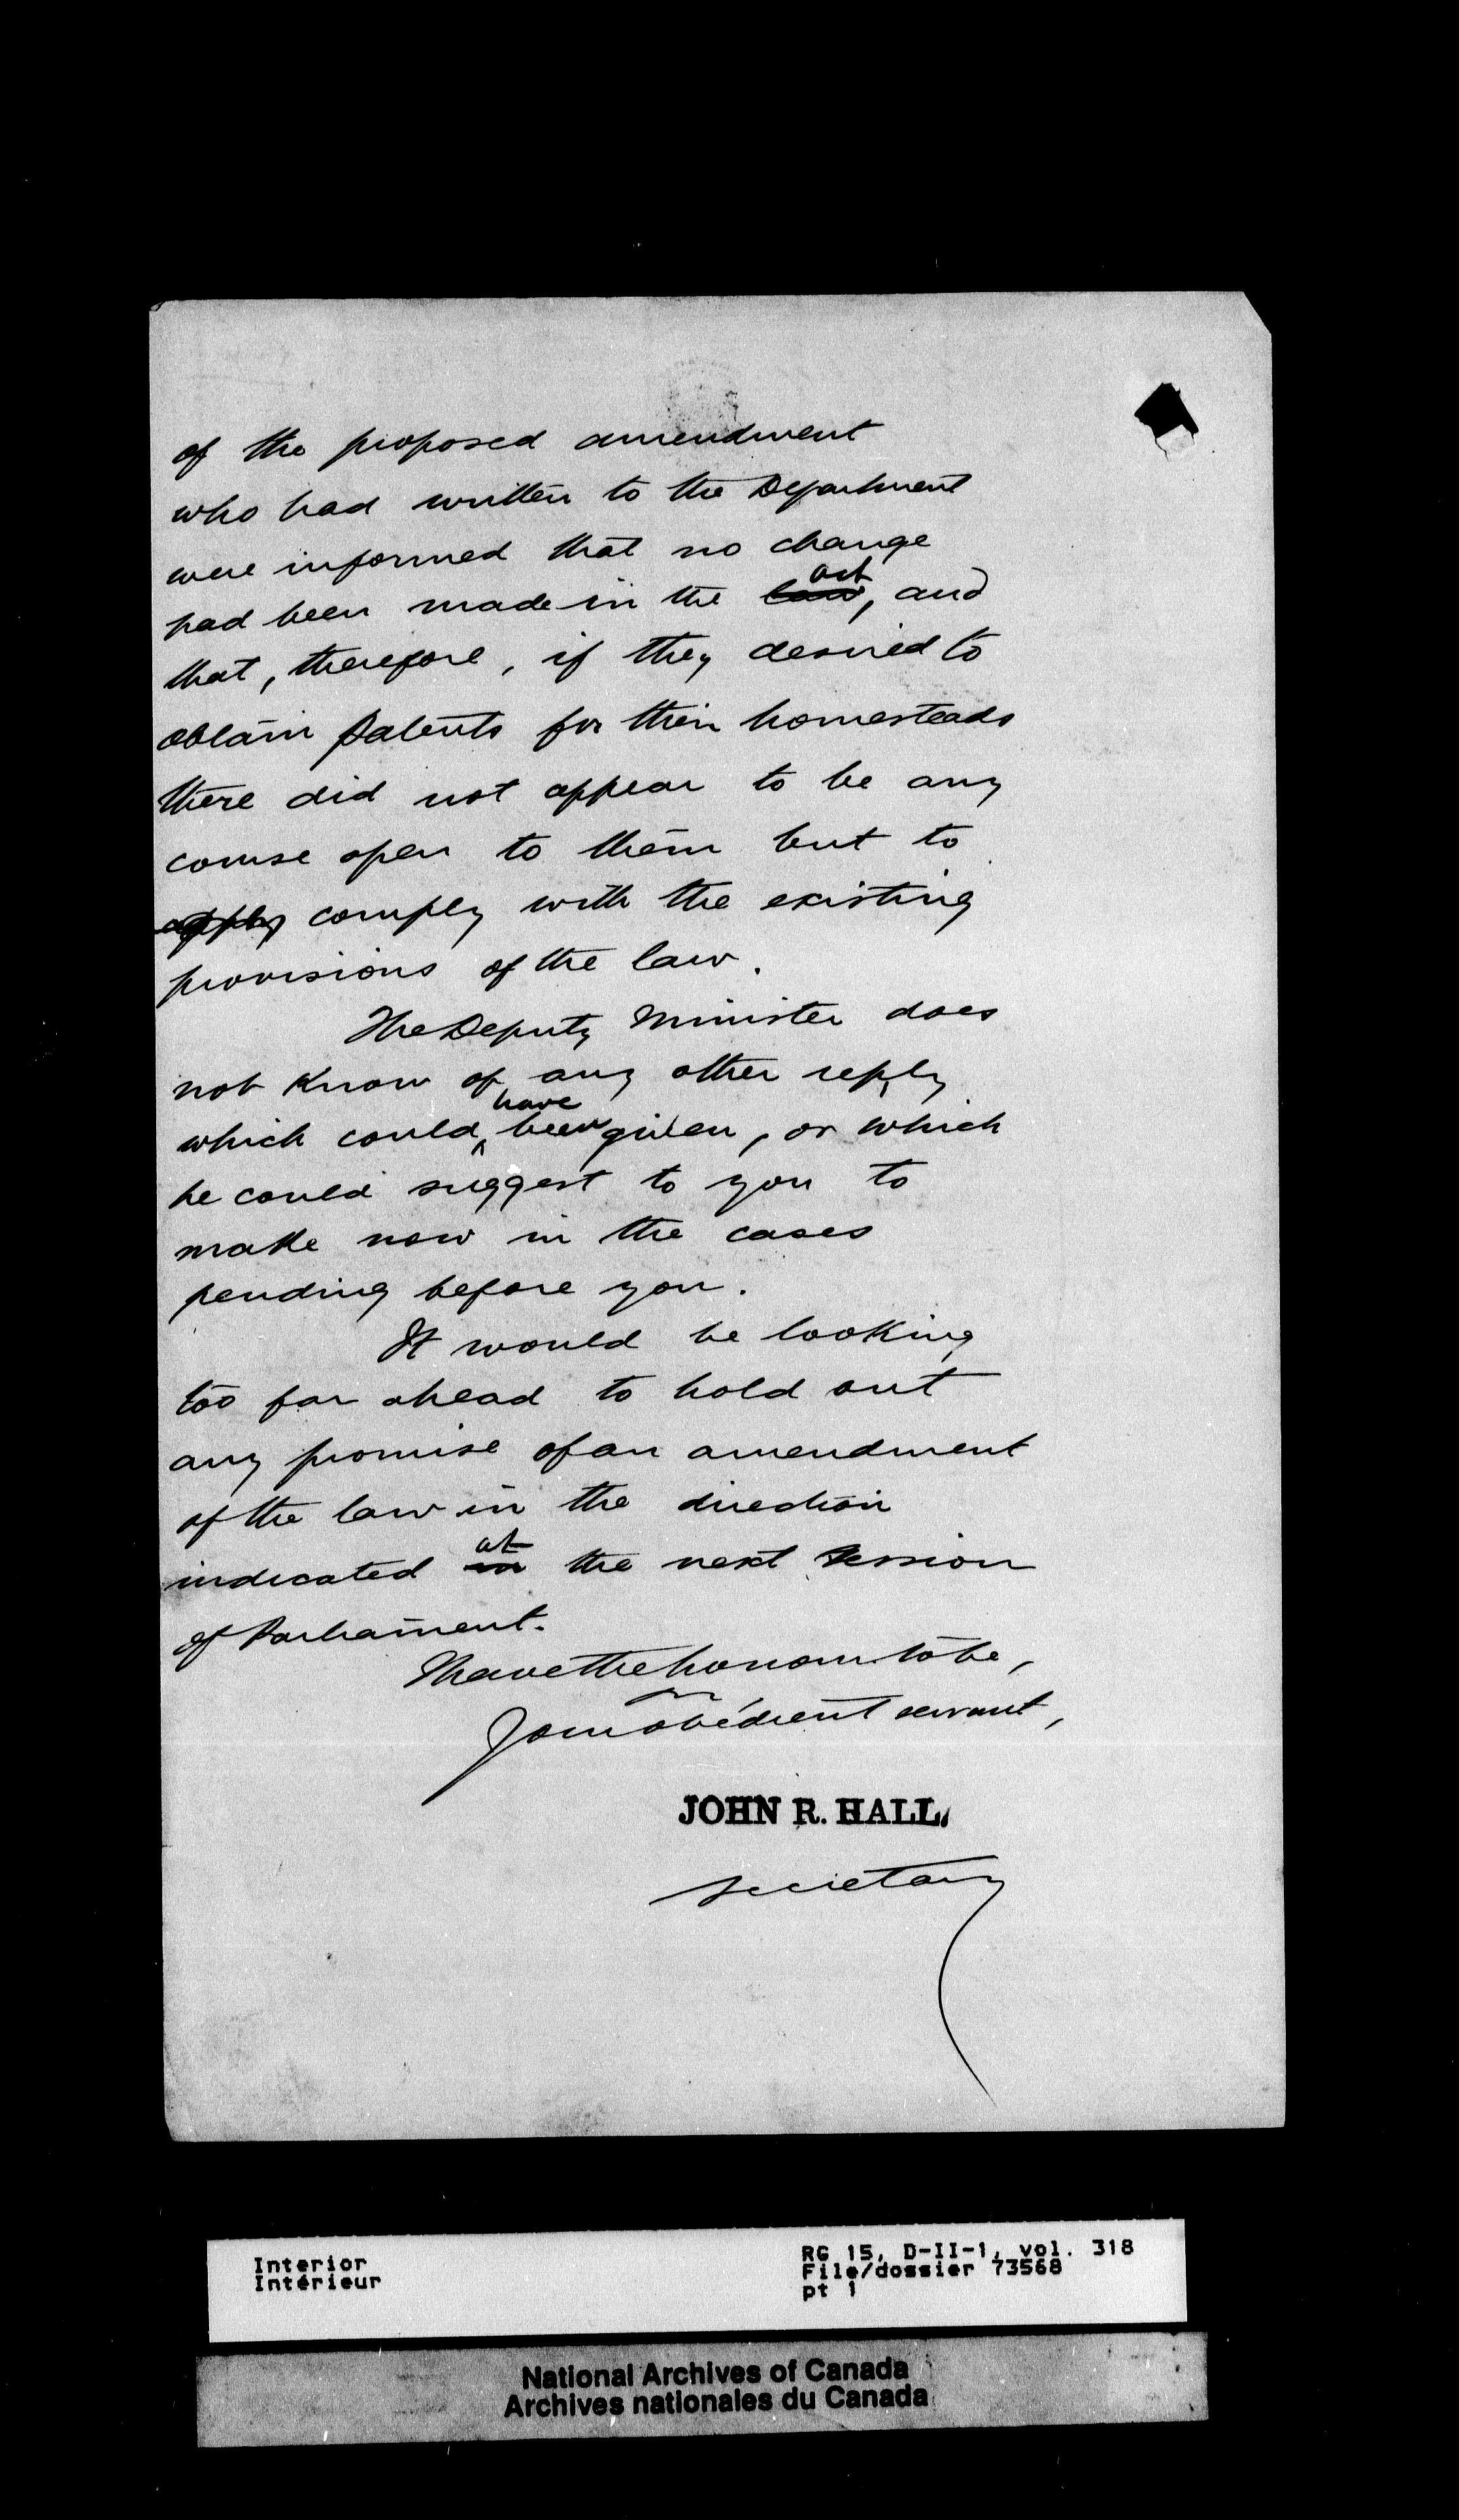 of the proposed amendment
who had written to the Department
were informed that no change
act
had been made in the law, and
that, therefore, if they desired to
obtain Patents for their homesteads
there did not appear to be any
course open to them but to
apply comply with the existing
provisions of the law.
The Deputy Minister does
not know of any other reply
have
which could ‸ been given, or which
he could suggest to you to
make now in the cases
pending before you.
It would be looking
too far ahead to hold out
any promise of an amendment
of the law in the direction
at
indicated in the next Session
of Parliament.
I have the honour to be,
Your obedient servant,
JOHN R. HALL,
Secretary
Interior
Intérieur
RG 15, D-II-1, vol. 318
File/dossier 73568
pt 1
National Archives of Canada
Archives nationales du Canada